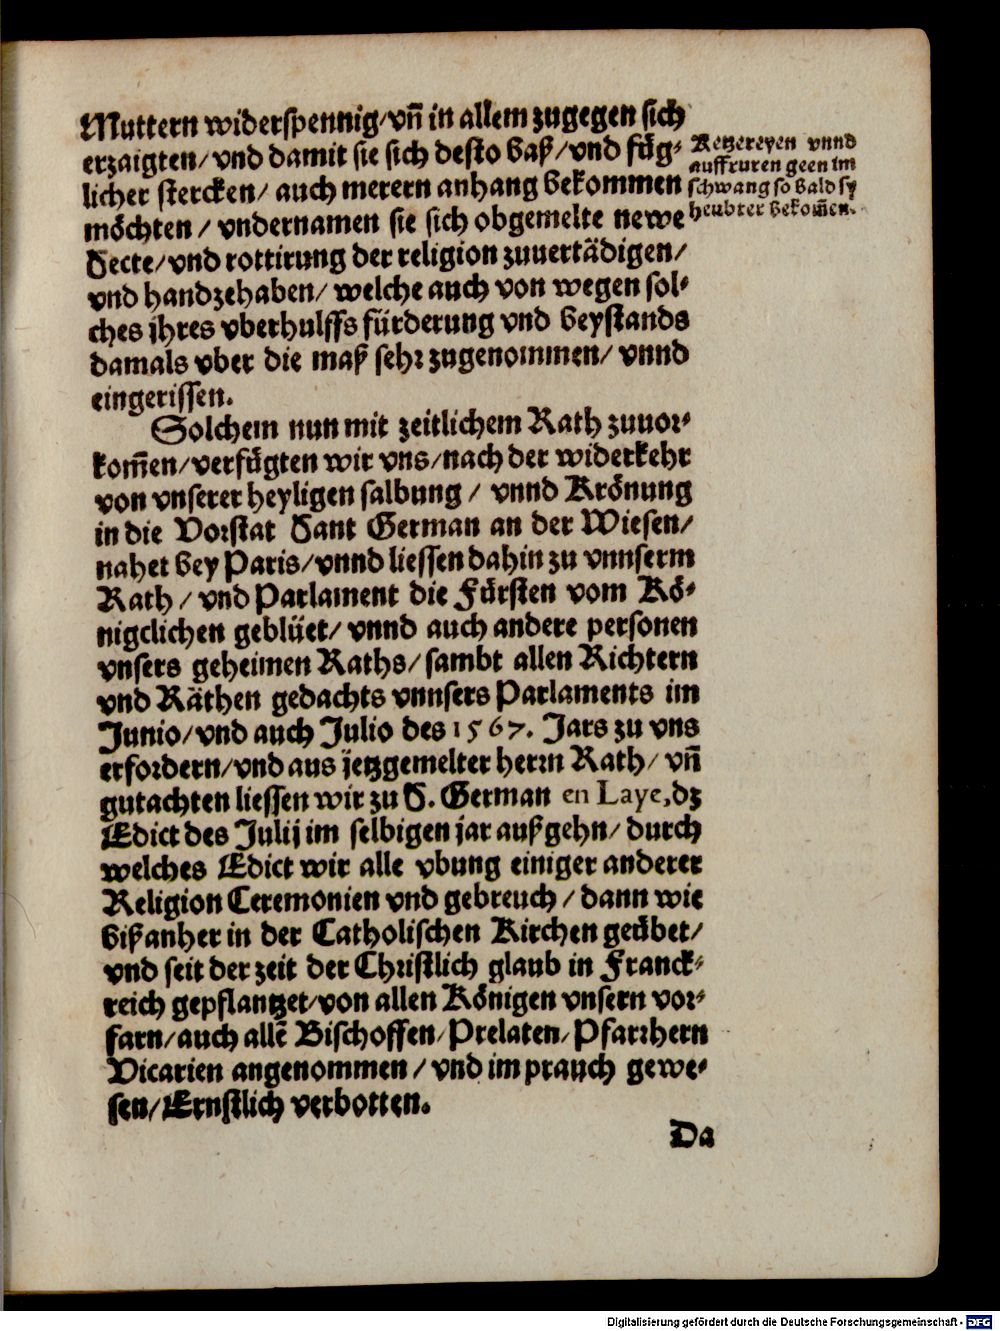 Muttern widerspennig/vñ in allem zugegen sich
erzaigten/vnd damit sie sich desto baß/vnd füg-
licher stercken/ auch merern anhang bekommen
möchten / vndernamen sie sich obgemelte newe
Secte/vnd rottirung der religion zuuertädigen/
vnd handzehaben/ welche auch von wegen sol-
ches jhres vberhulffs fürderung vnd beystands
damals vber die maß sehr zugenommen/ vnnd
eingerissen.
Ketzereyen vnnd
auffruren geen im
schwang so bald sy
heubter bekom̃en.
Solchem nun mit zeitlichem Rath zuuor-
kom̃en/verfügten wir vns/nach der widerkehr
von vnserer heyligen salbung / vnnd Krönung
in die Vorstat Sant German an der Wiesen/
nahet bey Paris/vnnd liessen dahin zu vnnserm
Rath / vnd Parlament die Fürsten vom Kö-
nigclichen geblüet/ vnnd auch andere personen
vnsers geheimen Raths/ sambt allen Richtern
vnd Räthen gedachts vnnsers Parlaments im
Junio/vnd auch Julio des 1567. Jars zu vns
erfordern/vnd aus jetzgemelter herrn Rath/ vñ
gutachten liessen wir zu S. German en Laye,dz
Edict des Julij im selbigen jar außgehn/ durch
welches Edict wir alle vbung einiger anderer
Religion Ceremonien vnd gebreuch / dann wie
bißanher in der Catholischen Kirchen geübet/
vnd seit der zeit der Christlich glaub in Franck-
reich gepflantzet/von allen Königen vnsern vor-
farn/auch allẽ Bischoffen/Prelaten/Pfarrhern
Vicarien angenommen / vnd im prauch gewe-
sen/Ernstlich verbotten.
Da
Digitalisierung gefördert durch die Deutsche Forschungsgemeinschaft - DFG